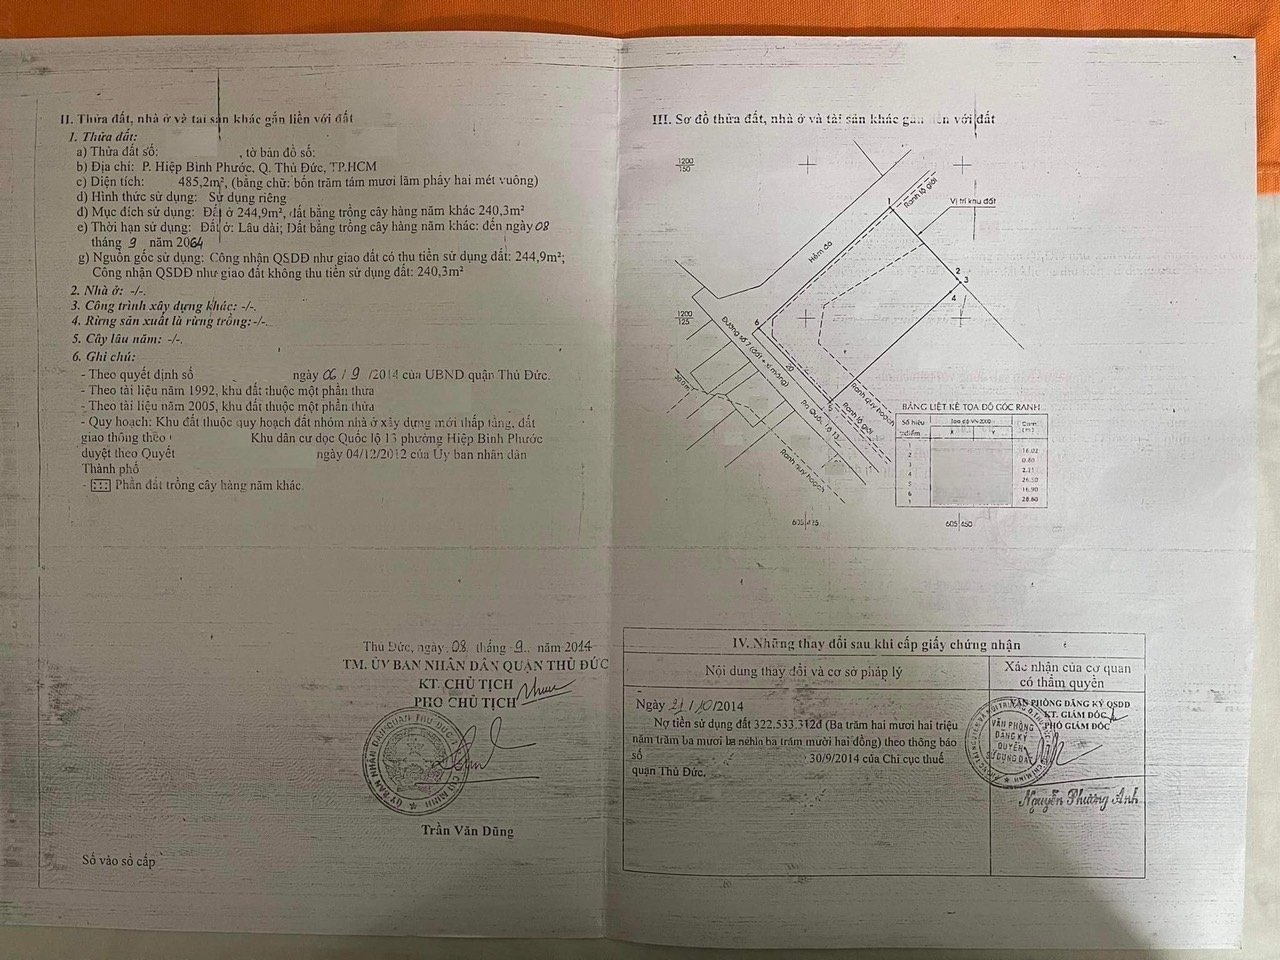 II. Thửa đất, nhà ở và tài sản khác gắn liền với đất
1. Thửa đất:
a) Thửa đất số: , tờ bản đồ số:
b) Địa chỉ: P. Hiệp Bình Phước, Q. Thủ Đức, TP.HCM
c) Diện tích: 485,2m², (bằng chữ: bốn trăm tám mươi lăm phẩy hai mét vuông)
d) Hình thức sử dụng: Sử dụng riêng
đ) Mục đích sử dụng: Đất ở 244,9m², đất bằng trồng cây hàng năm khác 240,3m²
e) Thời hạn sử dụng: Đất ở: Lâu dài; Đất bằng trồng cây hàng năm khác: đến ngày 08
tháng 9 năm 2064
g) Nguồn gốc sử dụng: Công nhận QSDĐ như giao đất có thu tiền sử dụng đất: 244,9m²;
Công nhận QSDĐ như giao đất không thu tiền sử dụng đất: 240,3m²
2. Nhà ở: -/-.
3. Công trình xây dựng khác: -/-.
4. Rừng sản xuất là rừng trồng: -/-.
5. Cây lâu năm: -/-.
6. Ghi chú:
- Theo quyết định số ngày 06/9/2014 của UBND quận Thủ Đức.
- Theo tài liệu năm 1992, khu đất thuộc một phần thửa
- Theo tài liệu năm 2005, khu đất thuộc một phần thửa
- Quy hoạch: Khu đất thuộc quy hoạch đất nhóm nhà ở xây dựng mới thấp tầng, đất
giao thông theo Khu dân cư dọc Quốc lộ 13 phường Hiệp Bình Phước
duyệt theo Quyết ngày 04/12/2012 của Ủy ban nhân dân
Thành phố
- Phần đất trồng cây hàng năm khác.
Thủ Đức, ngày 08 tháng 9 năm 2014
TM. ỦY BAN NHÂN DÂN QUẬN THỦ ĐỨC
KT. CHỦ TỊCH
PHÓ CHỦ TỊCH
Trần Văn Dũng
Số vào sổ cấp
III. Sơ đồ thửa đất, nhà ở và tài sản khác gắn liền với đất
1200
150
Ranh lộ giới
1
Vị trí khu đất
Hẻm đá
2
3
4
1200
125
6
Đường số 7 (đất + xi măng)
20
5
Ranh lộ giới
Ranh quy hoạch
Ra Quốc lộ 13
Ranh quy hoạch
BẢNG LIỆT KÊ TỌA ĐỘ GÓC RANH
Số hiệu điểm
Tọa độ VN-2000
Cạnh (m)
X Y
2 16.02
3 0.80
4 2.21
5 26.50
6 16.90
1 28.80
605 475
605 450
IV. Những thay đổi sau khi cấp giấy chứng nhận
Nội dung thay đổi và cơ sở pháp lý
Xác nhận của cơ quan
có thẩm quyền
Ngày 21/10/2014
Nợ tiền sử dụng đất 322.533.312đ (Ba trăm hai mươi hai triệu
năm trăm ba mươi ba nghìn ba trăm mười hai đồng) theo thông báo
số 30/9/2014 của Chi cục thuế
quận Thủ Đức.
VĂN PHÒNG ĐĂNG KÝ QSDĐ
KT. GIÁM ĐỐC
PHÓ GIÁM ĐỐC
VĂN PHÒNG
ĐĂNG KÝ
QUYỀN
SỬ DỤNG ĐẤT
Nguyễn Phương Anh